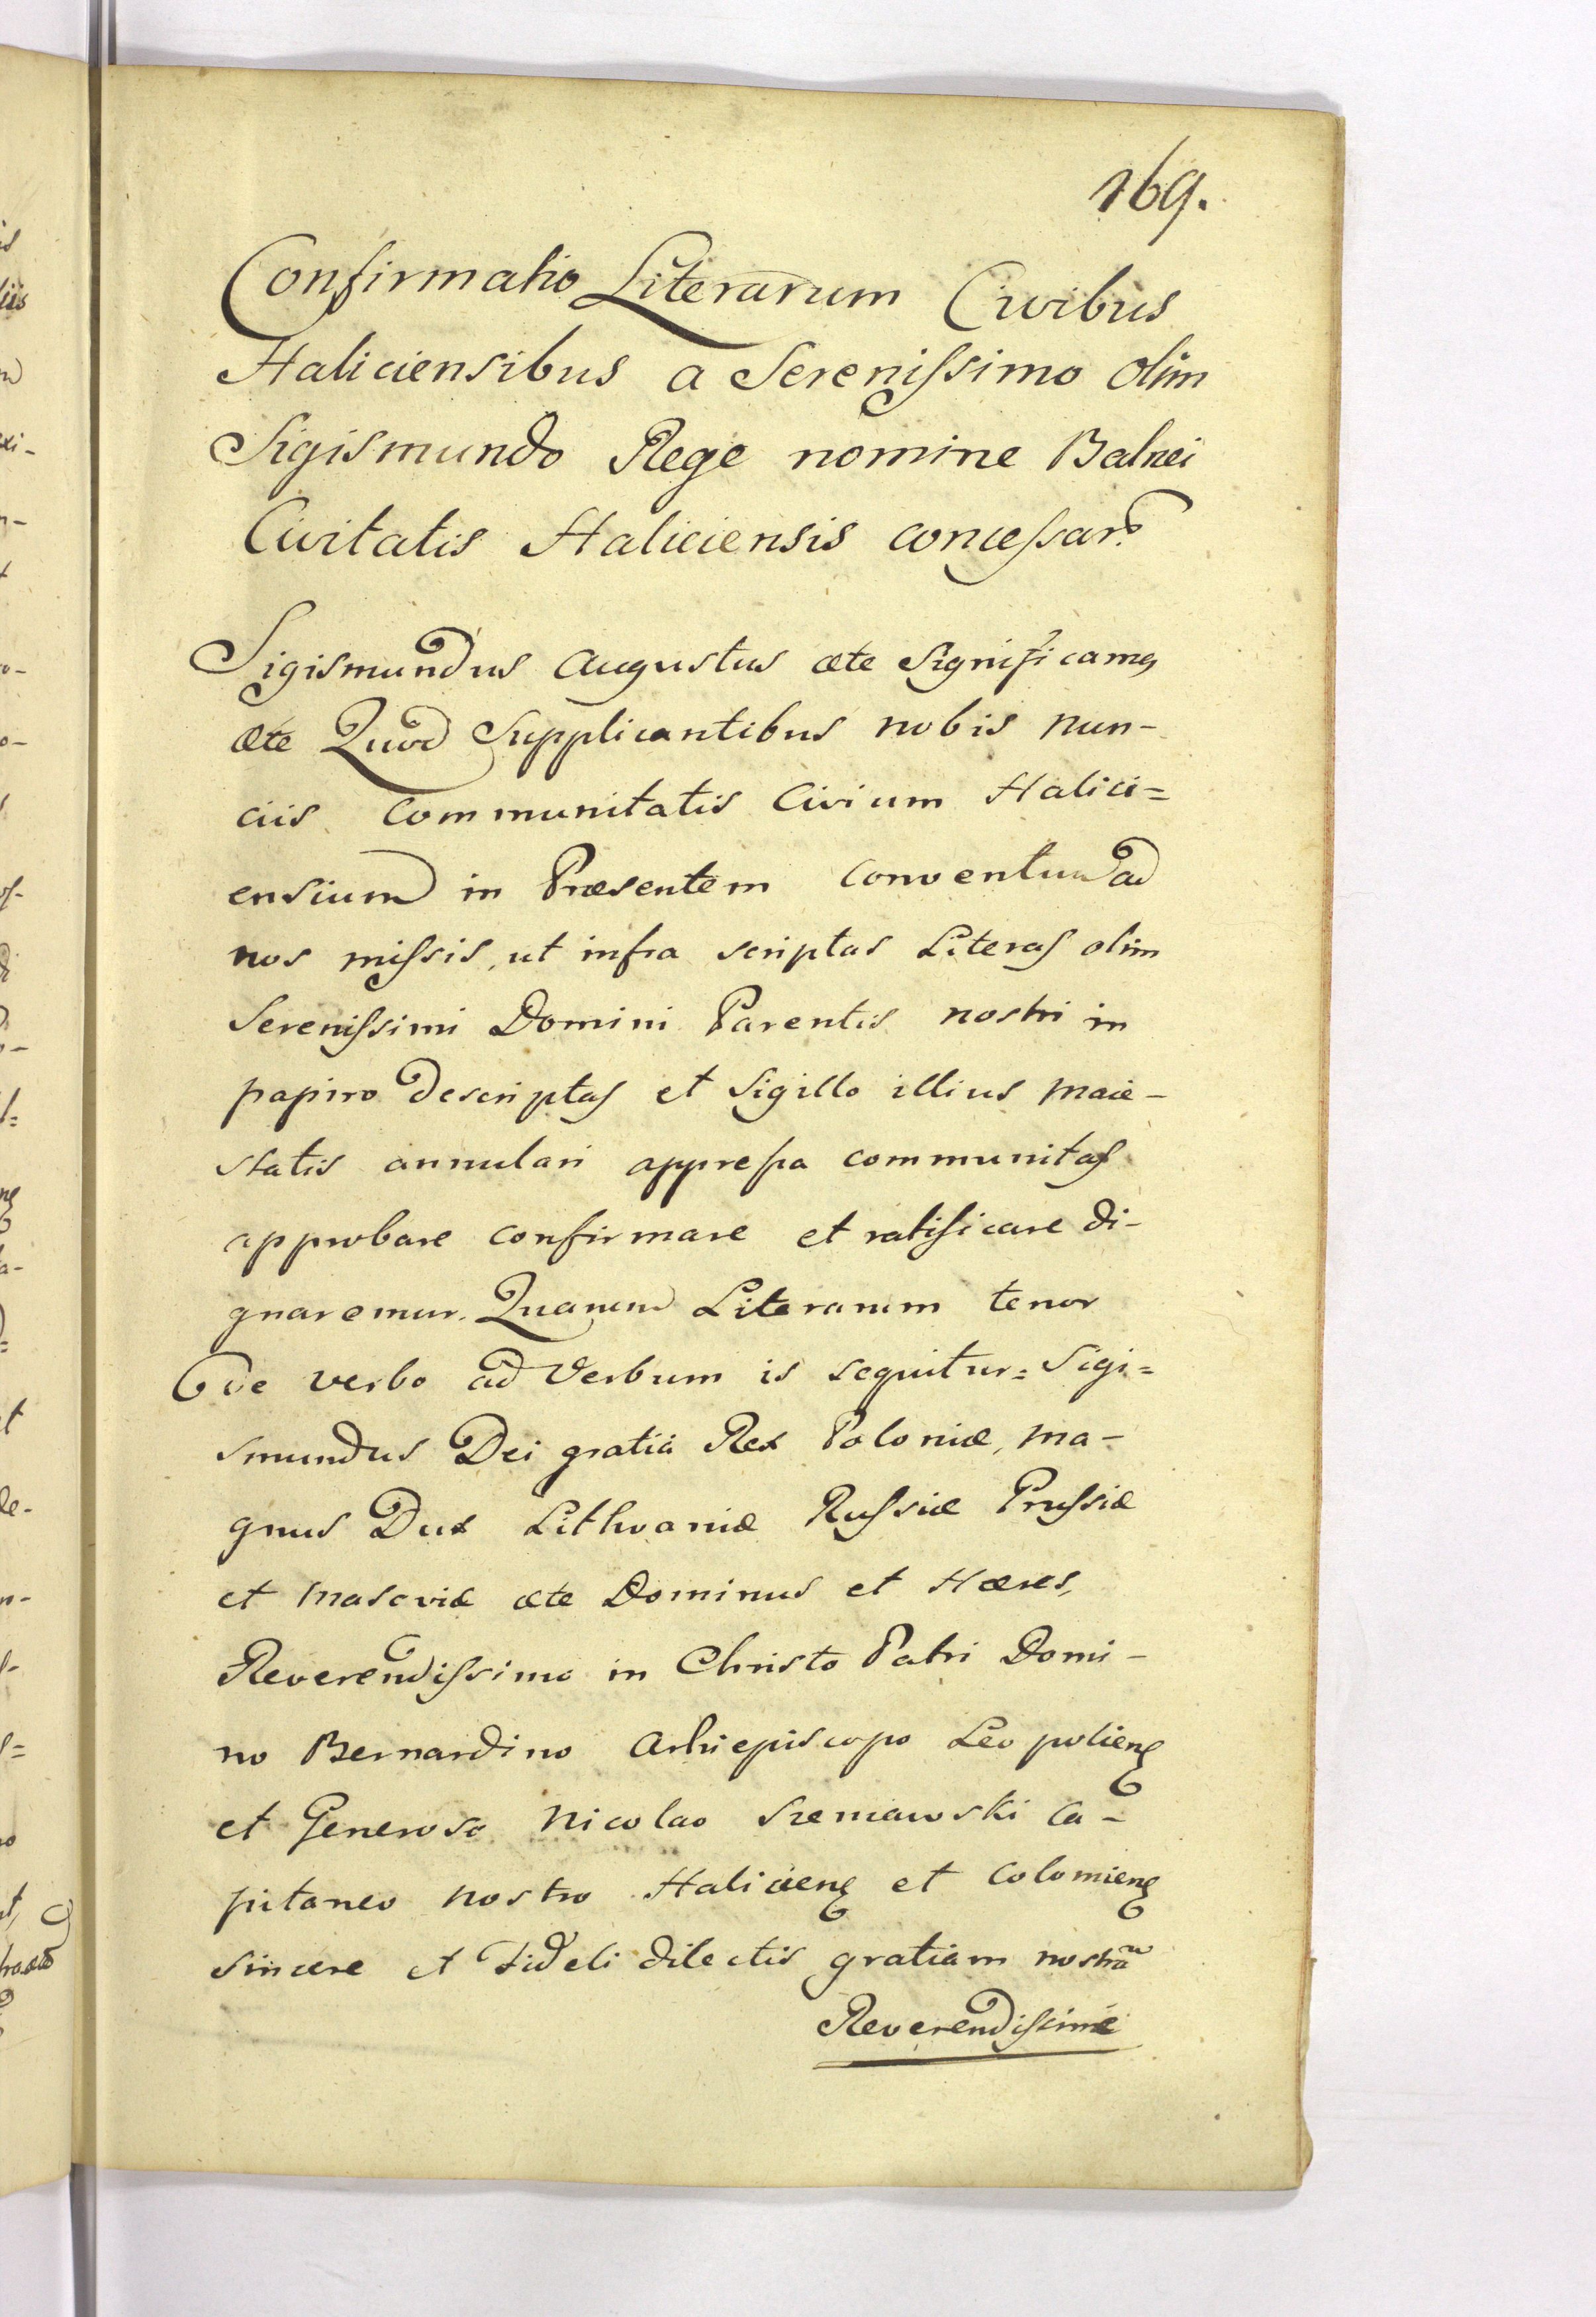 169.
Confirmatio Literarum Civibus
Haliciensibus a Serenissimo olim
Sigismundo Rege nomine Balnei
Civitatis Haliciensis concessar.
Sigismundus Augustus æte Significamq
æte Quod Supplicantibus nobis nun-
ciis Communitatis Civium Halici=
ensium in Præsentem conventum ad
nos missis, ut infra scriptas Literas olim
Serenissimi Domini Parentis nostri in
papiro descriptas et Sigillo illius Maie-
statis annulari appressa communitas
approbare confirmare et ratificare di-
gnaremur. Quarum Literarum tenor
de verbo ad Verbum is sequitur = Sigi=
smundus Dei gratia Rex Poloniæ, Ma-
gnus Dux Lithvaniæ Russiæ Prussiæ
et Masoviæ æte Dominus et Hæres,
Reverendissimo in Christo Patri Domi-
no Bernardino Arhiepiscopo Leopolienę
et Generoso Nicolao Sieniawski Ca-
pitaneo nostro Halicienę et Colomienę
sincere et fideli dilectis gratiam nostrã
Reverendissime